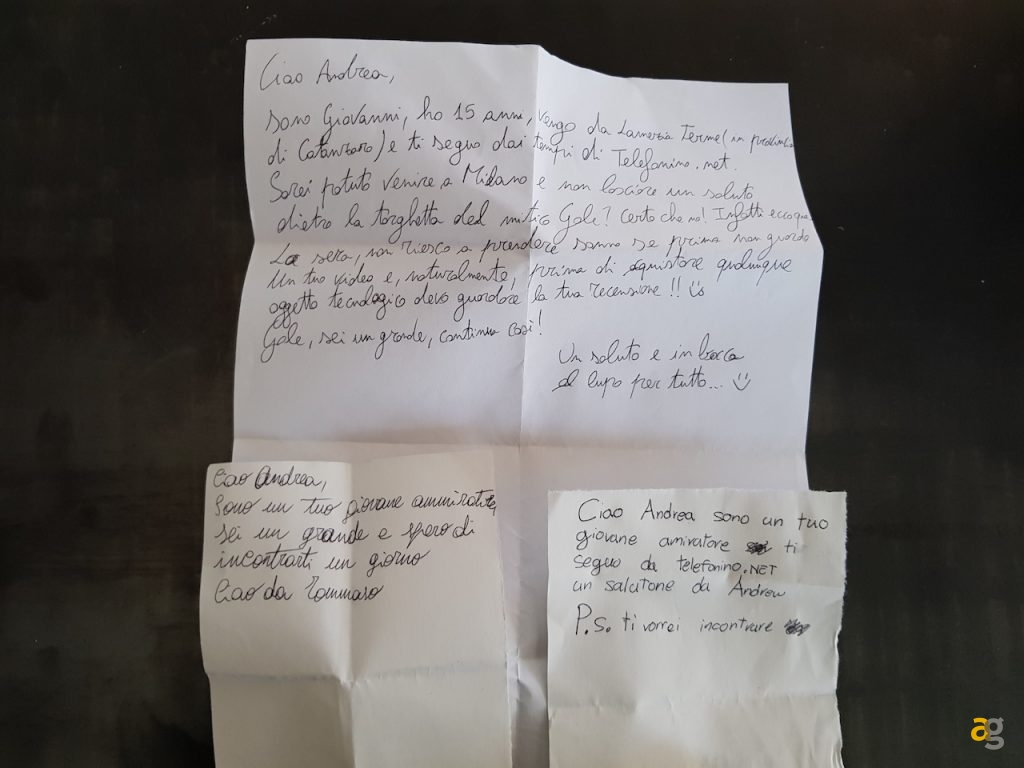 Ciao Andrea,
sono Giovanni, ho 15 anni, vengo da Lamezia Terme (in provincia
di Catanzaro) e ti seguo dai tempi di Telefonino.net.
Sarei potuto venire a Milano e non lasciare un saluto
dietro la targhetta del mitico Gale? Certo che no! Infatti eccoqua
La sera, non riesco a prendere sonno se prima non guardo
un tuo video e, naturalmente, prima di aquistare qualunque
oggetto tecnologico devo guardare la tua recensione!! ü
Gale, sei un grande, continua così!
Un saluto e in bocca
al lupo per tutto... ü
Ciao Andrea,
Sono un tuo giovane ammiratore,
sei un grande e spero di
incontrarti un giorno
Ciao da Tommaso
Ciao Andrea sono un tuo
giovane amiratore ti
seguo da telefonino.NET
un salutone da Andrew
P.S. ti vorrei incontrare
ag